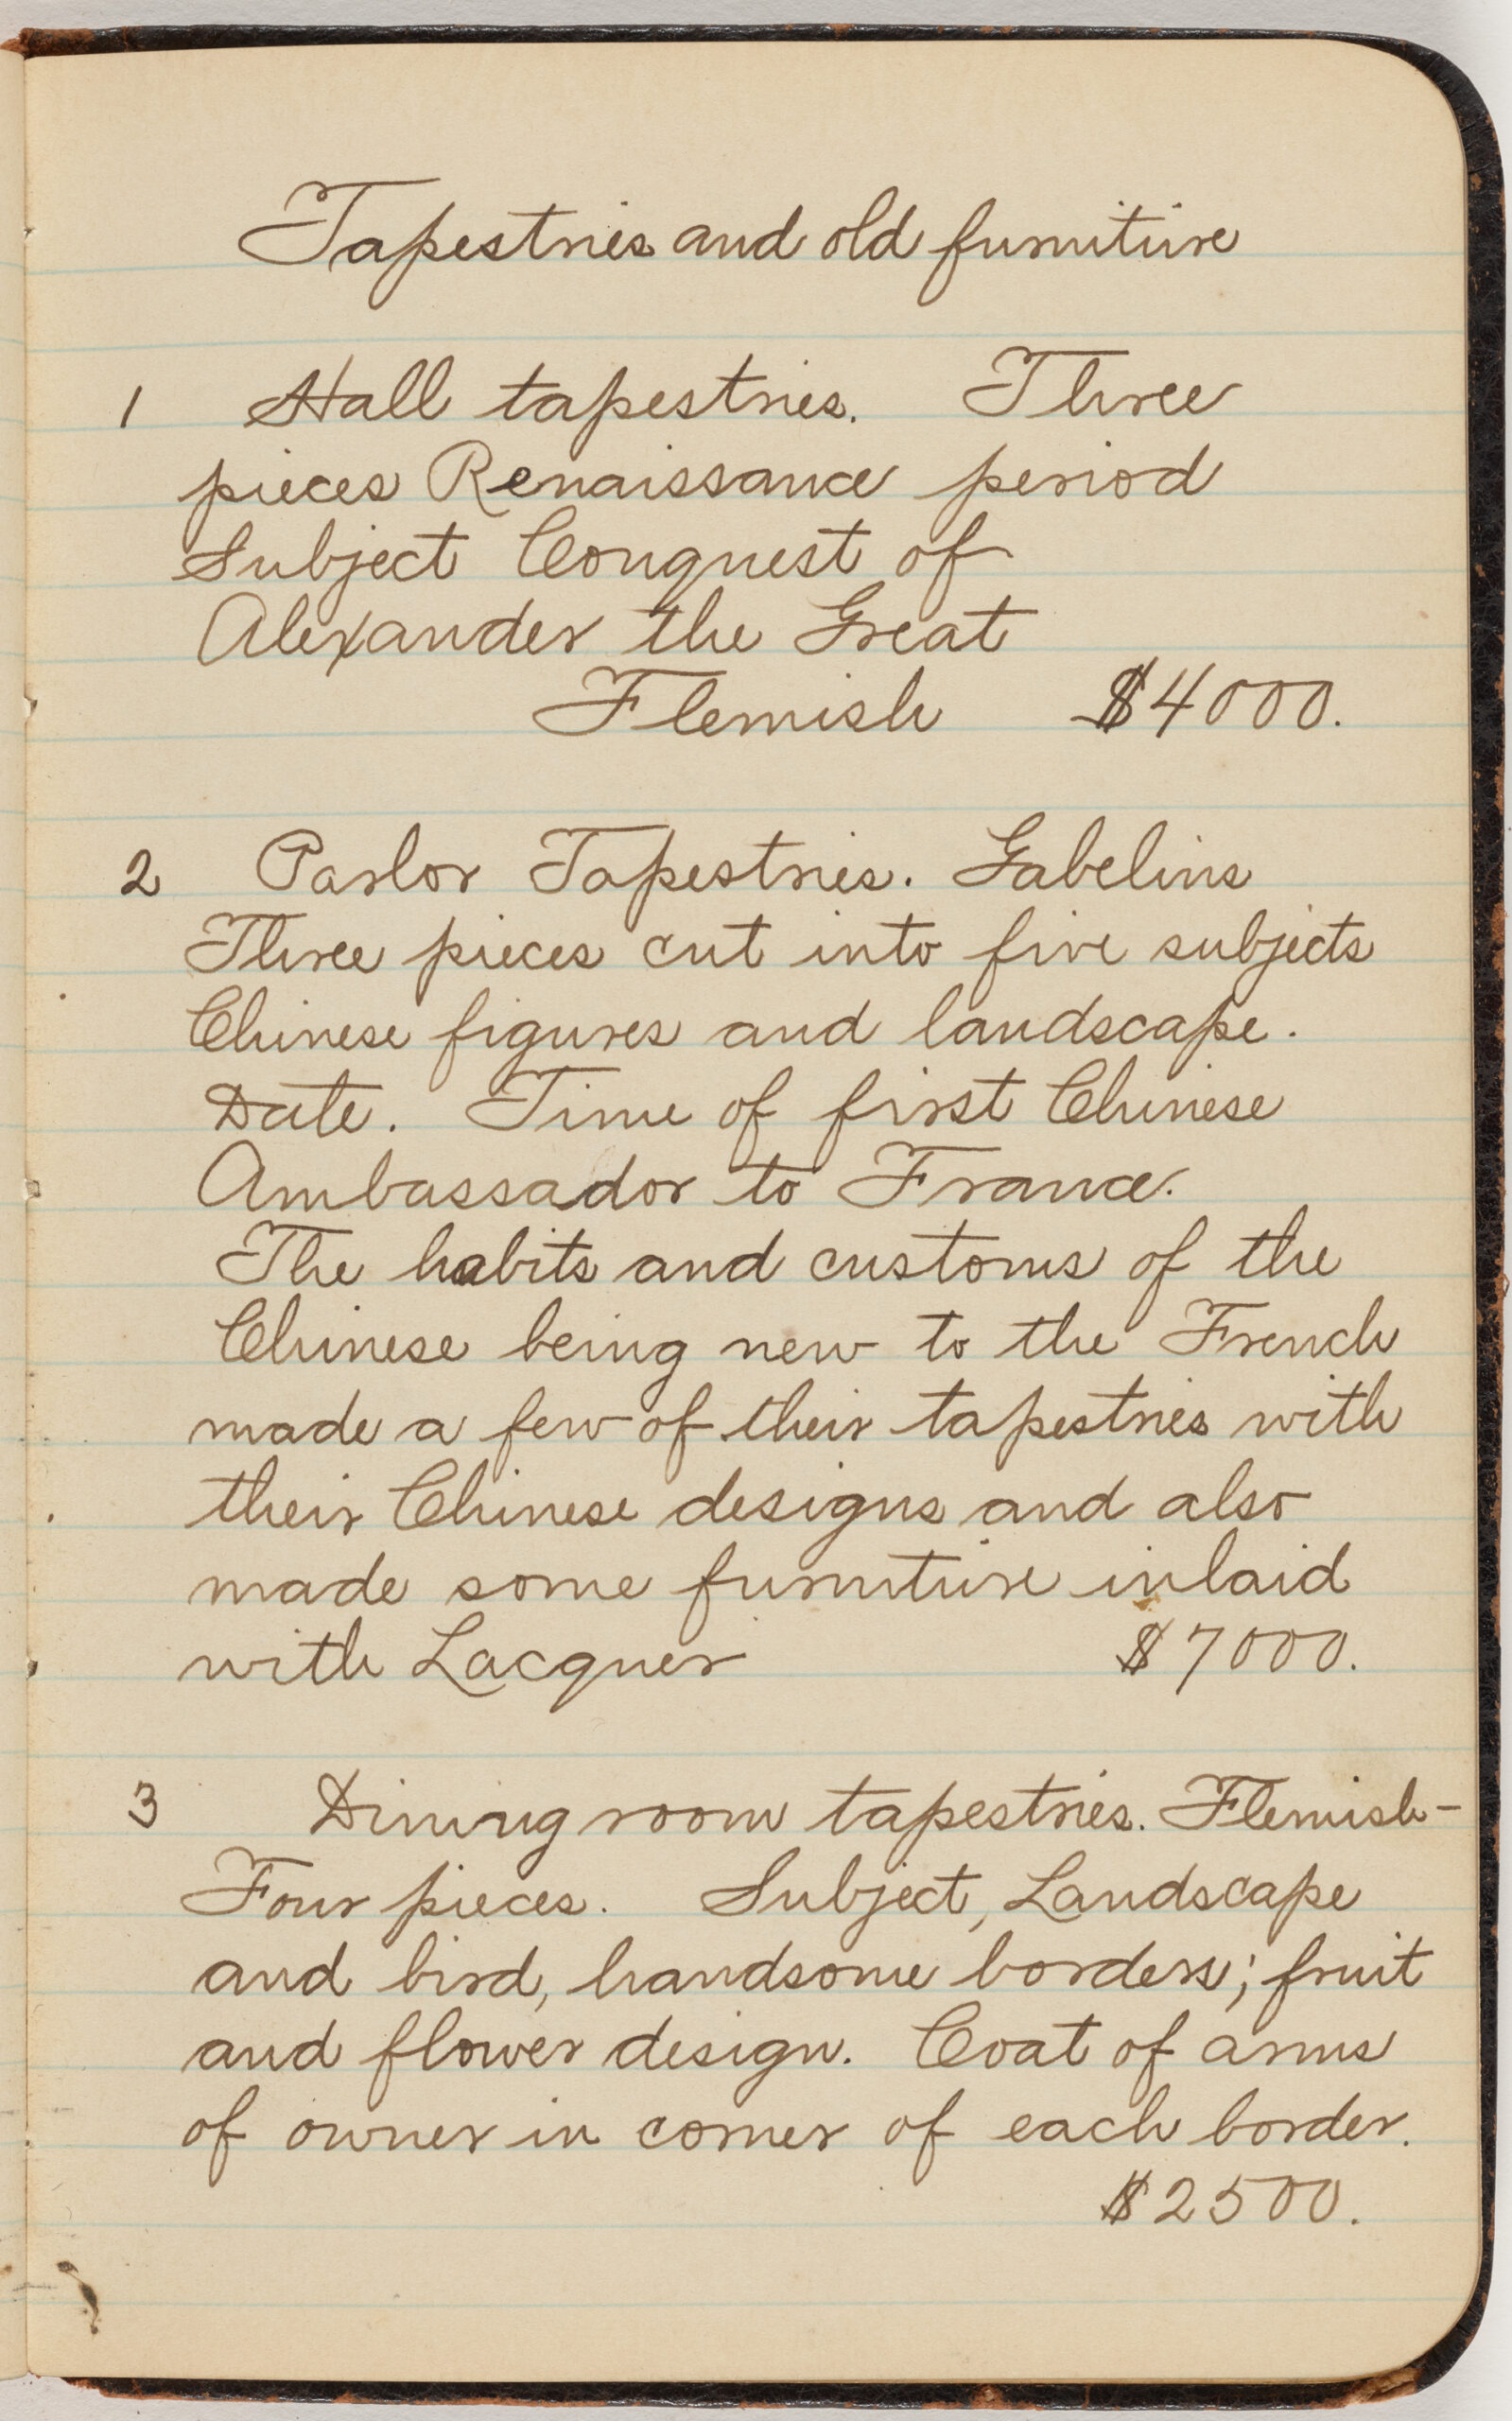 Tapestries and old furniture
1 Hall tapestries. Three
pieces Renaissance period
Subject Conquest of
Alexander the Great
Flemish $4000.
2 Parlor Tapestries. Gabelins
Three pieces cut into five subjects
Chinese figures and landscape.
Date. Time of first Chinese
Ambassador to France.
The habits and customs of the
Chinese being new to the French
made a few of their tapestries with
their Chinese designs and also
made some furniture inlaid
with Lacquer $7000.
3 Dining room tapestries. Flemish-
Four pieces. Subject, Landscape
and bird, handsome borders; fruit
and flower design. Coat of arms
of owner in corner of each border.
$2500.